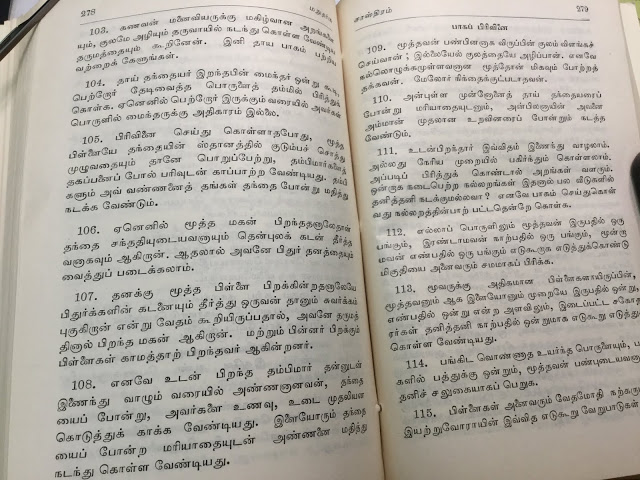 278
மநுதர்ம
103. கணவன் மனைவியருக்கு மகிழ்வான அறங்களை
யும், குலமே அழியும் தருவாயில் நடந்து கொள்ள வேண்டிய
தருமத்தையும் கூறினேன். இனி தாய பாகம் பற்றிய
வற்றைக் கேளுங்கள்.
104. தாய் தந்தையர் இறந்தபின் மைந்தர் ஒன்று கூடி,
பெற்றோர் தேடிவைத்த பொருளைத் தம்மில் பிரித்துக்
கொள்க. ஏனெனில் பெற்றோர் இருக்கும் வரையில் அவர்கள்
பொருளில் மைந்தருக்கு அதிகாரம் இல்லை.
105. பிரிவினை செய்து கொள்ளாதபோது, மூத்த
பிள்ளையே தந்தையின் ஸ்தானத்தில் குடும்பச் சொத்து
முழுவதையும் தானே பொறுப்பேற்று, தம்பிமார்களைத்
தகப்பனைப் போல் பரிவுடன் காப்பாற்ற வேண்டியது. தம்பி
களும் அவ் வண்ணனைத் தங்கள் தந்தை போன்று மதித்து
நடக்க வேண்டும்.
106. ஏனெனில் மூத்த மகன் பிறந்தனாலேதான்
தந்தை சந்ததியுடையவனாயும் தென்புலக் கடன் தீர்த்த
வனாகவும் ஆகிறான். ஆதலால் அவனே பிதுர் தனத்தையும்
வைத்துப் படைக்கலாம்.
107. தனக்கு மூத்த பிள்ளை பிறக்கின்றதனாலேயே
பிதுர்க்களின் கடனையும் தீர்த்து ஒருவன் தானும் சுவர்க்கம்
புகுகிறான் என்று வேதம் கூறியிருப்பதால், அவனே தரும
த்தினால் பிறந்த மகன் ஆகிறான். மற்றும் பின்னர் பிறக்கும்
பிள்ளைகள் காமத்தாற் பிறந்தவர் ஆகின்றனர்.
108. எனவே உடன் பிறந்த தம்பிமார் தன்னுடன்
இணைந்து வாழும் வரையில் அண்ணனானவன், தந்தை
யைப் போன்று, அவர்களை உணவு, உடை முதலியன
கொடுத்துக் காக்க வேண்டியது. இளையோரும் தந்தை
யைப் போன்ற மரியாதையுடன் அண்ணனை மதித்து
நடந்து கொள்ள வேண்டியது.
சாஸ்திரம்
279
பாகப் பிரிவினை
109. மூத்தவன் பண்பினனாக விருப்பின் குலம் விளங்கச்
செய்வான்; இல்லையேல் குலத்தையே அழிப்பான். எனவே
கல்லொழுக்கமுள்ளவனான மூத்தோன் மிகவும் போற்றத்
தக்கவன். மேலோர் நிந்தைக்குட்படாதவன்.
110. அன்புள்ள முன்னோனைத் தாய் தந்தையரைப்
போன்று மரியாதையுடனும், அன்பிலனாயின் அவனை
அம்மான் முதலான உறவினரைப் போன்றும் நடத்த
வேண்டும்.
111. உடன்பிறந்தார் இவ்விதம் இணைந்து வாழலாம்.
அல்லது நேரிய முறையில் பகிர்ந்தும் கொள்ளலாம்.
அப்படிப் பிரித்துக் கொண்டால் அறங்கள் வளரும்.
ஒன்றாக நடைபெற்ற நல்லறங்கள் இதனால் பல வீடுகளில்
தனித்தனி நடக்குமல்லவா? எனவே பாகம் செய்துகொள்
வது நல்லறத்தின்பாற் பட்டதென்றே கொள்க.
112. எல்லாப் பொருளிலும் மூத்தவன் இருபதில் ஒரு
பங்கும், இரண்டாமவன் நாற்பதில் ஒரு பங்கும், மூன்றா
மவன் எண்பதில் ஒரு பங்கும் எடுகூறாக எடுத்துக்கொண்டு
மிகுதியை அனைவரும் சமமாகப் பிரிக்க.
113. மூவருக்கு அதிகமான பிள்ளைகளாயிருப்பின்,
மூத்தவனும் ஆக இளையோனும் முறையே இருபதில் ஒன்று,
எண்பதில் ஒன்று என்ற அளவிலும், இடைப்பட்ட சகோத
ரர்கள் தனித்தனி நாற்பதில் ஒன்றுமாக எடுகூறு எடுத்துக்
கொள்ள வேண்டியது.
114. பங்கிட வொண்ணாத உயர்ந்த பொருளையும், ப
களில் பத்துக்கு ஒன்றும், மூத்தவன் பண்புடையவனா
தனிச் சலுகையாகப் பெறுக.
115. பிள்ளைகள் அனைவரும் வேதமோதி நற்கரும
இயற்றுவோராயின் இவ்வித எடுகூறு வேறுபாடுகள்